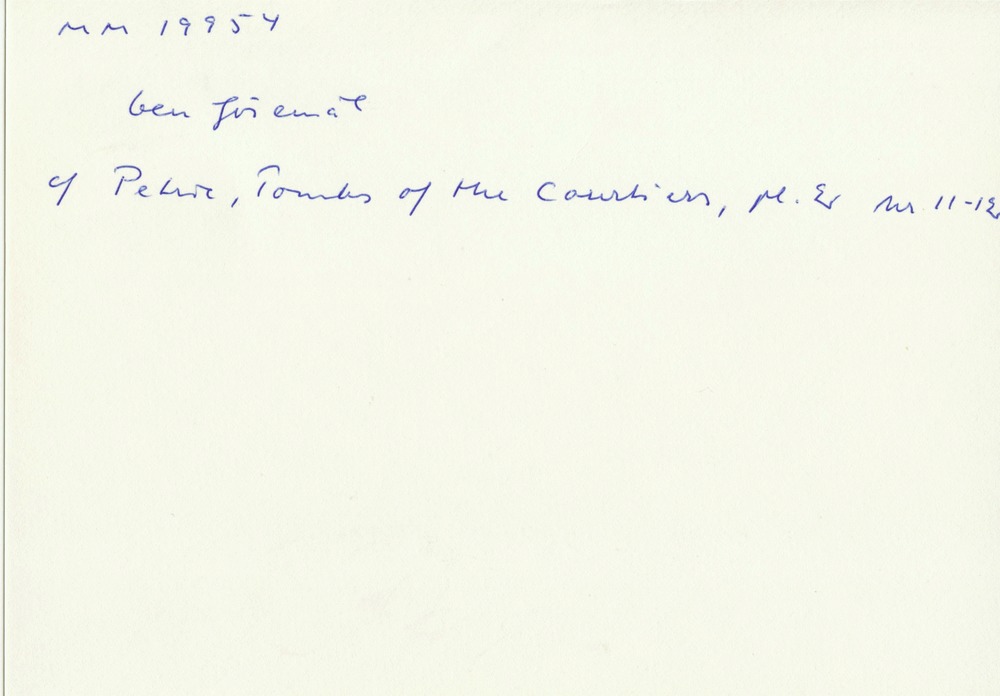 MM 19954
ben föremål
cf Petrie, Tombs of the Courtiers, pl. nr 11-12